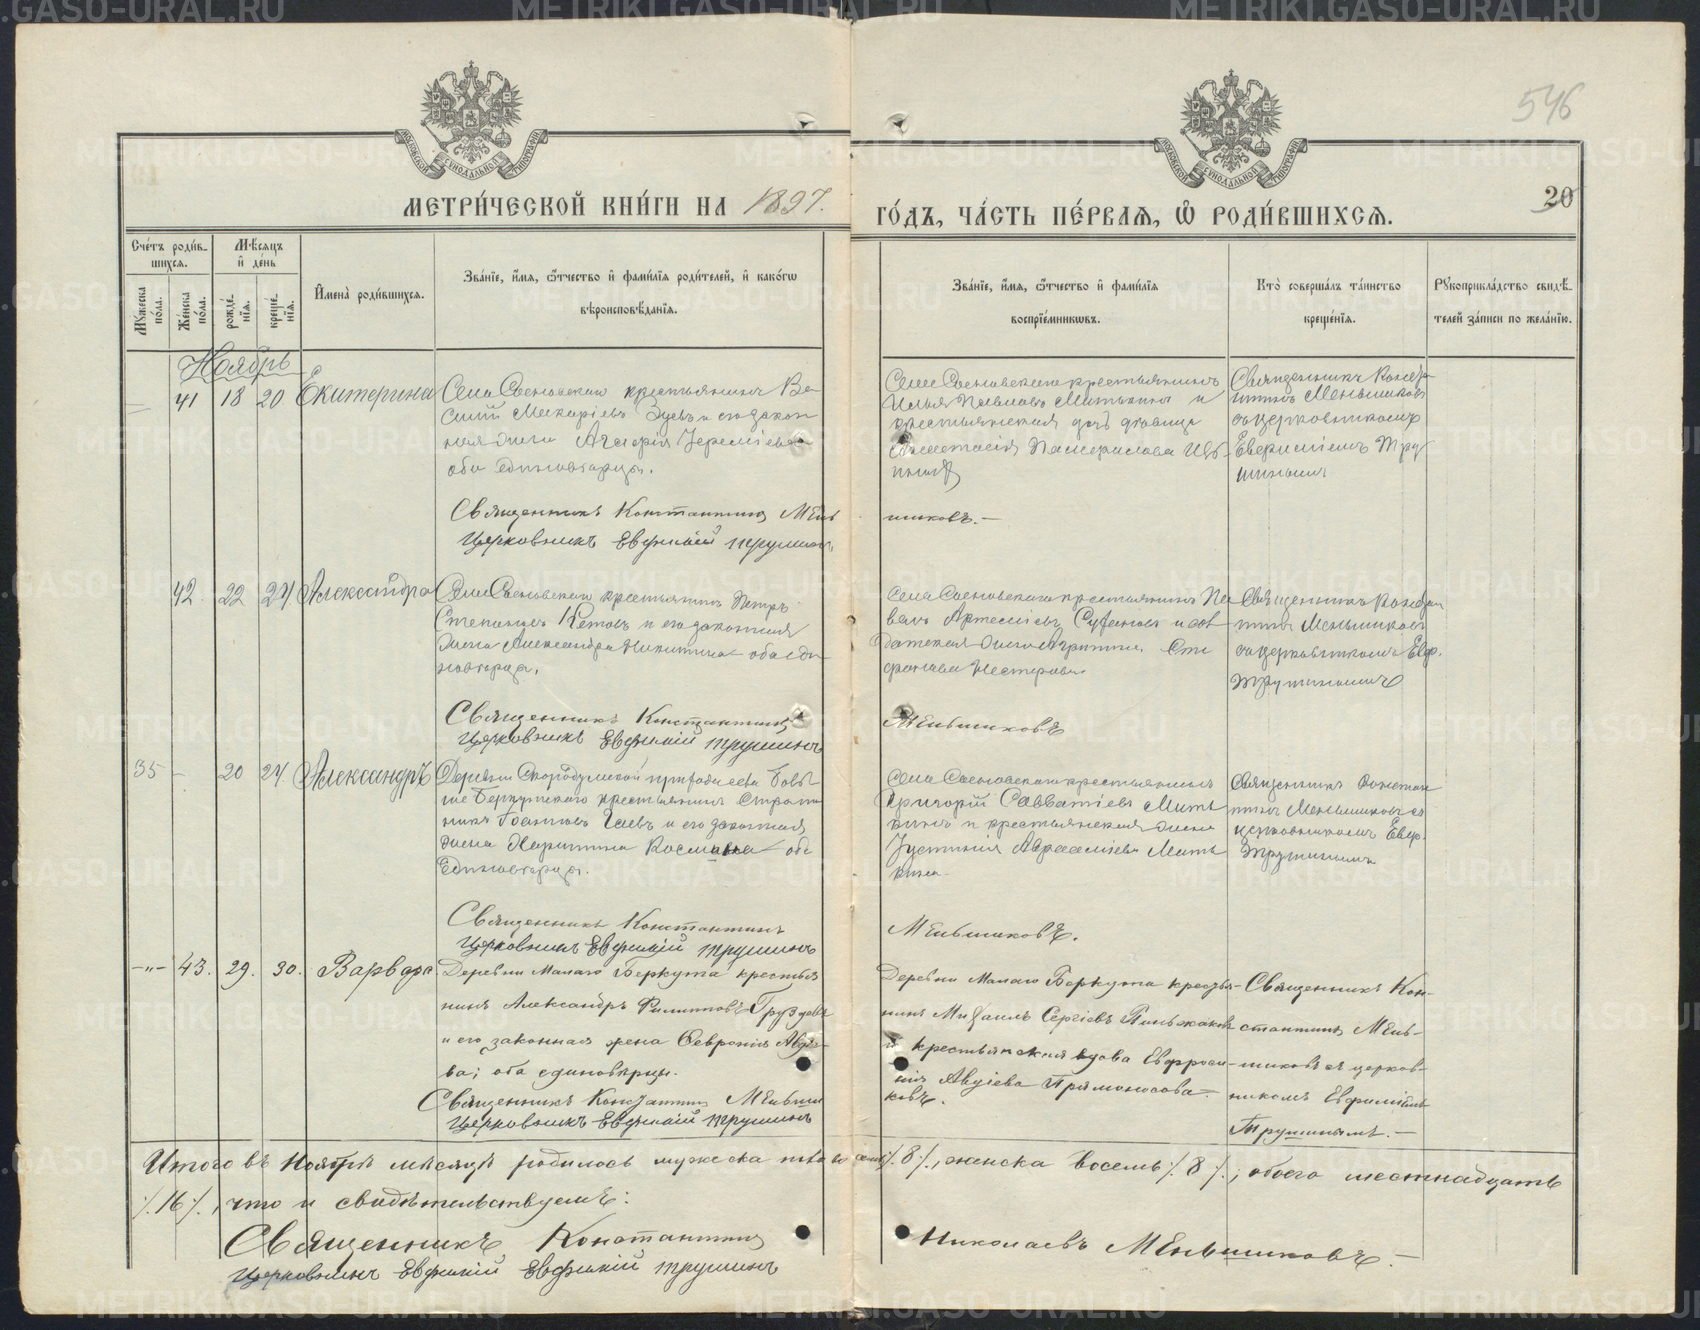 546
20
МЕТРИ́ЧЕСКОЙ КНИ́ГИ НА 1897.
ГО́ДЪ, ЧА́СТЬ ПЕ́РВАѦ, Ѽ РОДИ́ВШИХСѦ.
Сче́тъ роди́в-
шихсѧ.
Мѣ́сѧцъ
и҆ де́нь
Мꙋ́жеска
по́ла.
Же́нска
по́ла.
рожде́-
нїѧ.
креще́-
нїѧ.
И҆мена̀ роди́вшихсѧ.
Зва́нїе, и҆́мѧ, ѻ҆́тчество и҆ фами́лїѧ роди́телей, и҆ како́гѡ
вѣроисповѣ́данїѧ.
Зва́нїе, и҆́мѧ, ѻ҆́тчество и҆ фами́лїѧ
воспрїе́мникѡвъ.
Кто̀ соверша́лъ та́инство
креще́нїѧ.
Рꙋкоприкла́дство свидѣ́-
телей за́писи по жела́нїю.
Ноябрь
41 18 20 Екатерина
Села Сосновскаго крестьянинъ Ва-
силий Макариевъ и его закон-
ная жена Иеремиева
оба единоверцы.
Священникъ Константинъ Мень
Церковникъ Евфимій Трушинъ
Села Сосновскаго крестьянинъ
Илья Павловъ Митькинъ и
крестьянская дочь девица
Анастасия Памфилова
Священникъ Констан
тинъ Меньшиковъ
съ церковникомъ
Евфимиемъ Тру
шинымъ
шиковъ.—
42. 22 24 Александра
Села Сосновскаго крестьянинъ Петръ
Степановъ и его законная
жена Александра Никитина оба еди-
новерцы.
Священникъ Константинъ
Церковникъ Евфимій Трушинъ
Села Сосновскаго крестьянинъ Па
велъ Артемиевъ и сол
датская жена Агрипина Сте
фанова Нестерова
Священникъ Констан
тинъ Меньшиковъ
съ церковникомъ Евф.
Трушинымъ
Меньшиковъ
35 - 20 24. Александръ
Деревни прихода села
крестьянинъ
Иоанновъ и его законная
жена Харитина Космина оба
Единоверцы.
Священникъ Константинъ
Церковникъ Евфимій Трушинъ
Села Сосновскаго крестьянинъ
Григорий Савватиевъ Мить
кинъ и крестьянская жена
Иустиния Авраамиева Мить
кина
Священникъ Констан
тинъ Меньшиковъ съ
церковникомъ Евф.
Трушинымъ
Меньшиковъ.
-„- 43. 29. 30. Варвара
Деревни Малаго Беркута крестья
нинъ Александръ Филиповъ Груздевъ
и его законная жена Февронія Авдѣе-
ва; оба единовѣрцы.
Священникъ Константинъ Меньши
Церковникъ Евфимій Трушинъ
Деревни Малаго Беркута крестья-
нинъ Михаилъ Сергіевъ
и крестьянская вдова Евфроси-
нія Авдіева Прямоносова.
ковъ.
Священникъ Кон-
стантинъ Мень-
шиковъ съ церков-
никомъ Евфиміемъ
Трушинымъ.—
Итого въ Ноябрѣ мѣсяцѣ родилось мужеска пола восемь /.8/., женска восемь /.8/.; обоего шестнадцать
/.16/., что и свидѣтельствуемъ:
Священникъ Константинъ Николаевъ Меньшиковъ.—
Церковникъ Евфимій Евфимій Трушинъ
METRIKI.GASO-URAL.RU